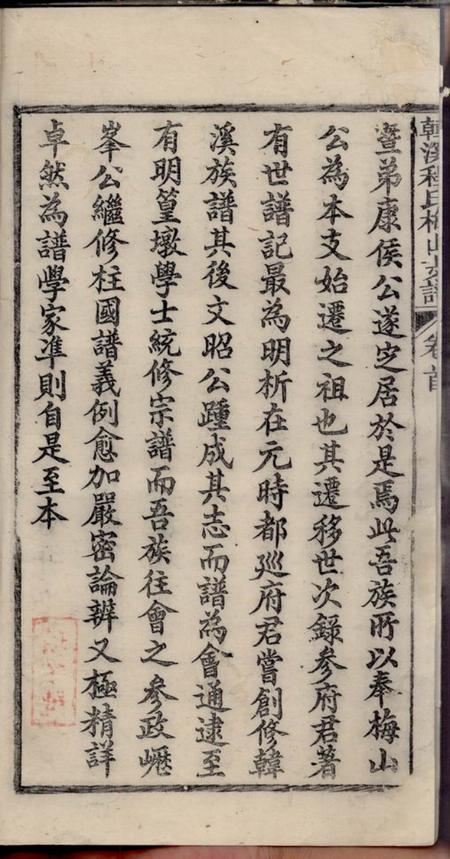 韓溪程氏梅山支譜 卷首
暨弟康侯公遂定居於是焉此吾族所以奉梅山
公為本支始遷之祖也其遷移世次錄參府君著
有世譜記最為明析在元時都廵府君嘗創修韓
溪族譜其後文昭公踵成其志而譜為會通逮至
有明篁墩學士統修宗譜而吾族往會之參政㟐
峯公繼修柱國譜義例愈加嚴密論辨又極精詳
卓然為譜學家準則自是至本